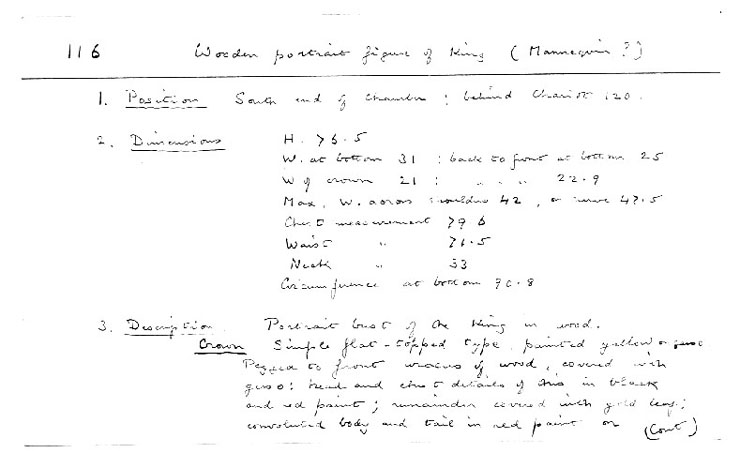 116 Wooden portrait figure of King (Mannequin ?)
1. Position South end of chamber : behind Chariot 120.
2. Dimensions H. 76.5
W. at bottom 31 : back to front at bottom 25
W of crown 21 : " " " 22.9
Max. W. across shoulders 42, on curve 47.5
Chest measurement 79.6
Waist " 71.5
Neck " 33
Circumference at bottom 90.8
3. Description Portrait bust of the King in wood.
Crown Simple flat-topped type, painted yellow on gesso
Pegged to front uraeus of wood, covered with
gesso: head and chest details of this in black
and red paint; remainder covered with gold leaf;
convoluted body and tail in red paint on (Cont)